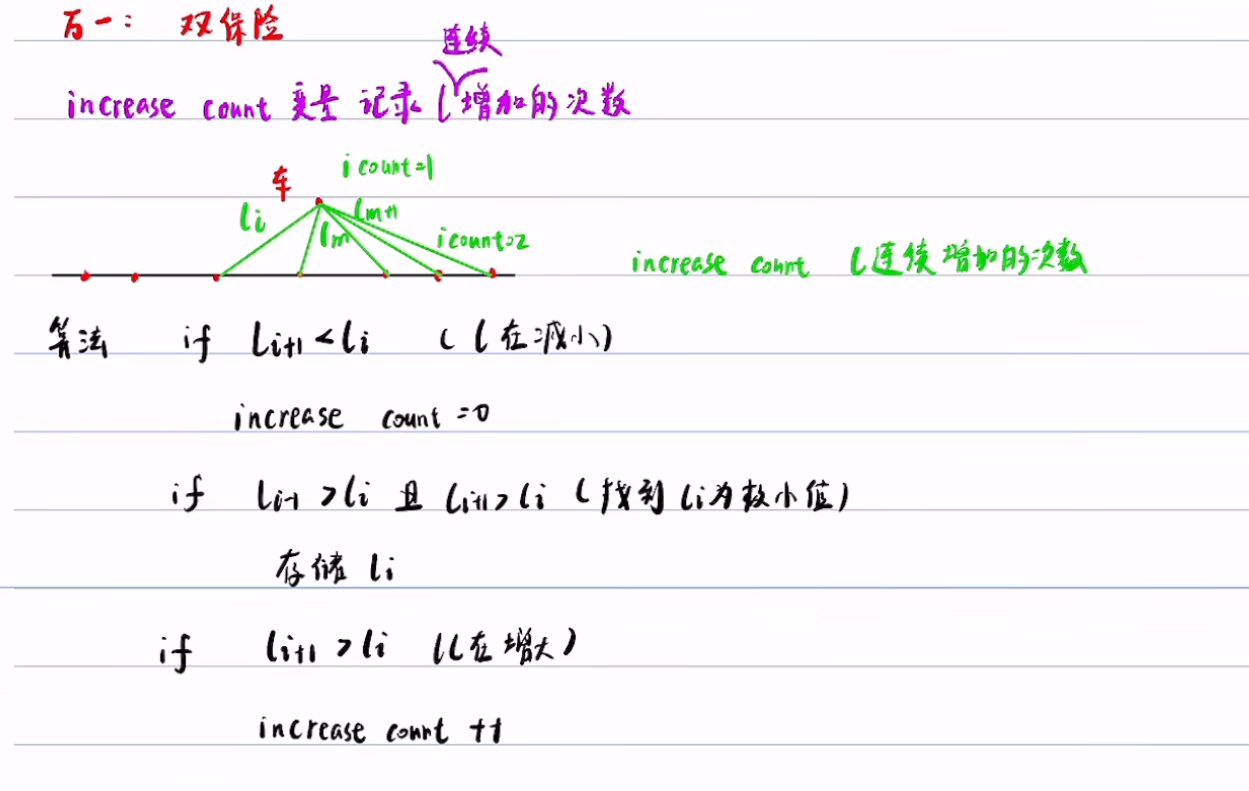 万一： 双保险
连续
increase count 变量 记录 l 增加的次数
车 i count=1
li lm lm+1 i count=2
increase count l连续增加的次数
算法 if li+1 < li ( l 在减小)
increase count =0
if li-1 > li 且 li+1 > li ( 找到 li为极小值)
存储 li
if li+1 > li (l在增大)
increase count ++